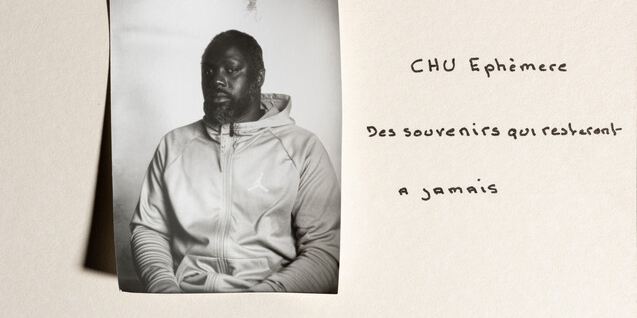 CHU Ephèmere
Des souvenirs qui resteront
A JAMAIS